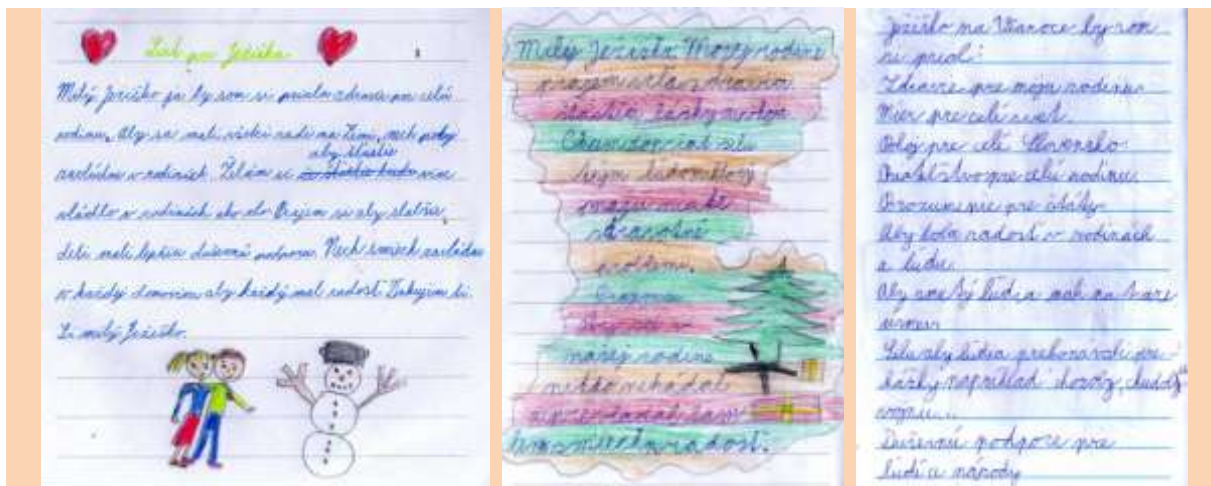 List pre Ježiška
Milý Ježiško ja by som si priala zdravie pre celú
rodinu. Aby sa mali všetci radi na Zemi, nech pokoj
aby šťastie
zavládne v rodinách. Želám si viac
vládlo v rodinách ako zlo. Prajem si aby slabšie
deti mali lepšiu duševnú podporu. Nech smiech zavládne
v každý domovine aby každý mal radosť. Ďakujem ti.
Si milý Ježiško.
Milý Ježiško Mojej rodine
prajem veľa zdravia
šťastia lásky
majú
zdravotné
problémi.
Prajem
aby sa v
našej rodine
nikto nehádal
smiech a radosť.
Ježiško na Vianoce by som
si prial:
Zdravie pre moju rodinu.
Mier pre celí svet.
Pokoj pre celé Slovensko.
Priatelstvo pre celú rodinu.
Porozumenie pre
Aby bola radosť v rodinách
a ľudí.
Aby ľudia mali na tvare
úsmev
Silu aby ľudia prekonávali pre-
kážky napríklad choroby, chudobu
vojnu...
Duševnú podporu pre
ľudí a národy